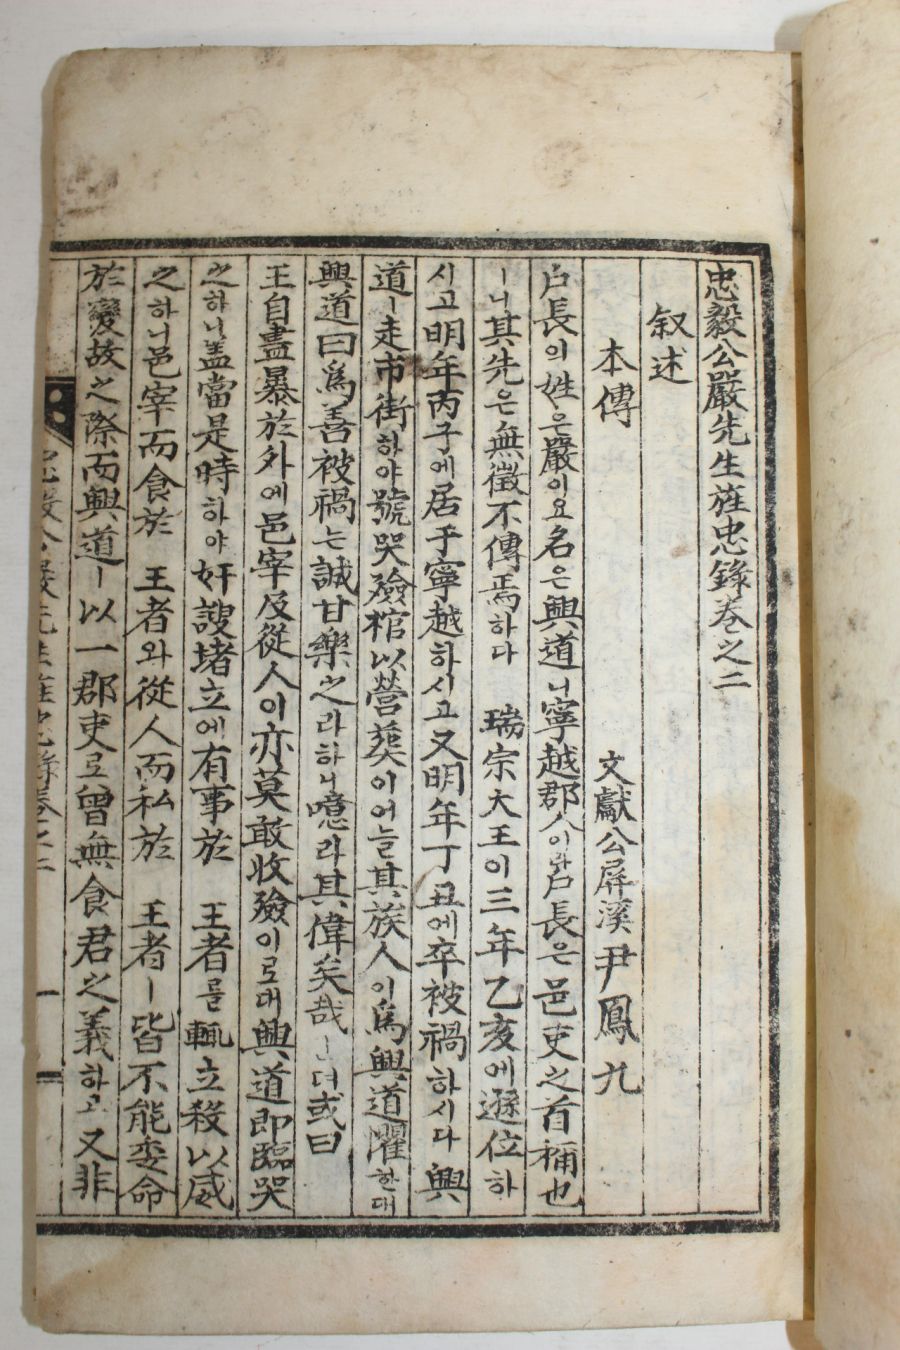 忠毅公嚴先生旌忠錄卷之二
叙述
本傳 文獻公屛溪尹鳳九
户長의姓은嚴이요名은興道니寧越郡人이라户長은邑吏之首稱也
ㅣ니其先은無徵不傳焉하다 瑞宗大王이三年乙亥에遜位하
시고明年丙子에居于寧越하시고又明年丁丑에卒被禍하시다興
道ㅣ走市街하야號哭殮棺以營葬이어늘其族人이爲興道懼한대
興道曰爲善被禍는誠甘樂之라하니噫라其偉矣哉ㄴ더或曰
王自盡暴於外에邑宰及從人이亦莫敢收殮이로대興道即臨哭
之하니盖當是時하야奸謏堵立에有事於 王者를輒立殺以威
之하니邑宰而食於 王者와從人而私於 王者ㅣ皆不能委命
於變故之際而興道ㅣ以一郡吏로曾無食君之義하고又非
忠毅公嚴先生旌忠錄卷之二 一